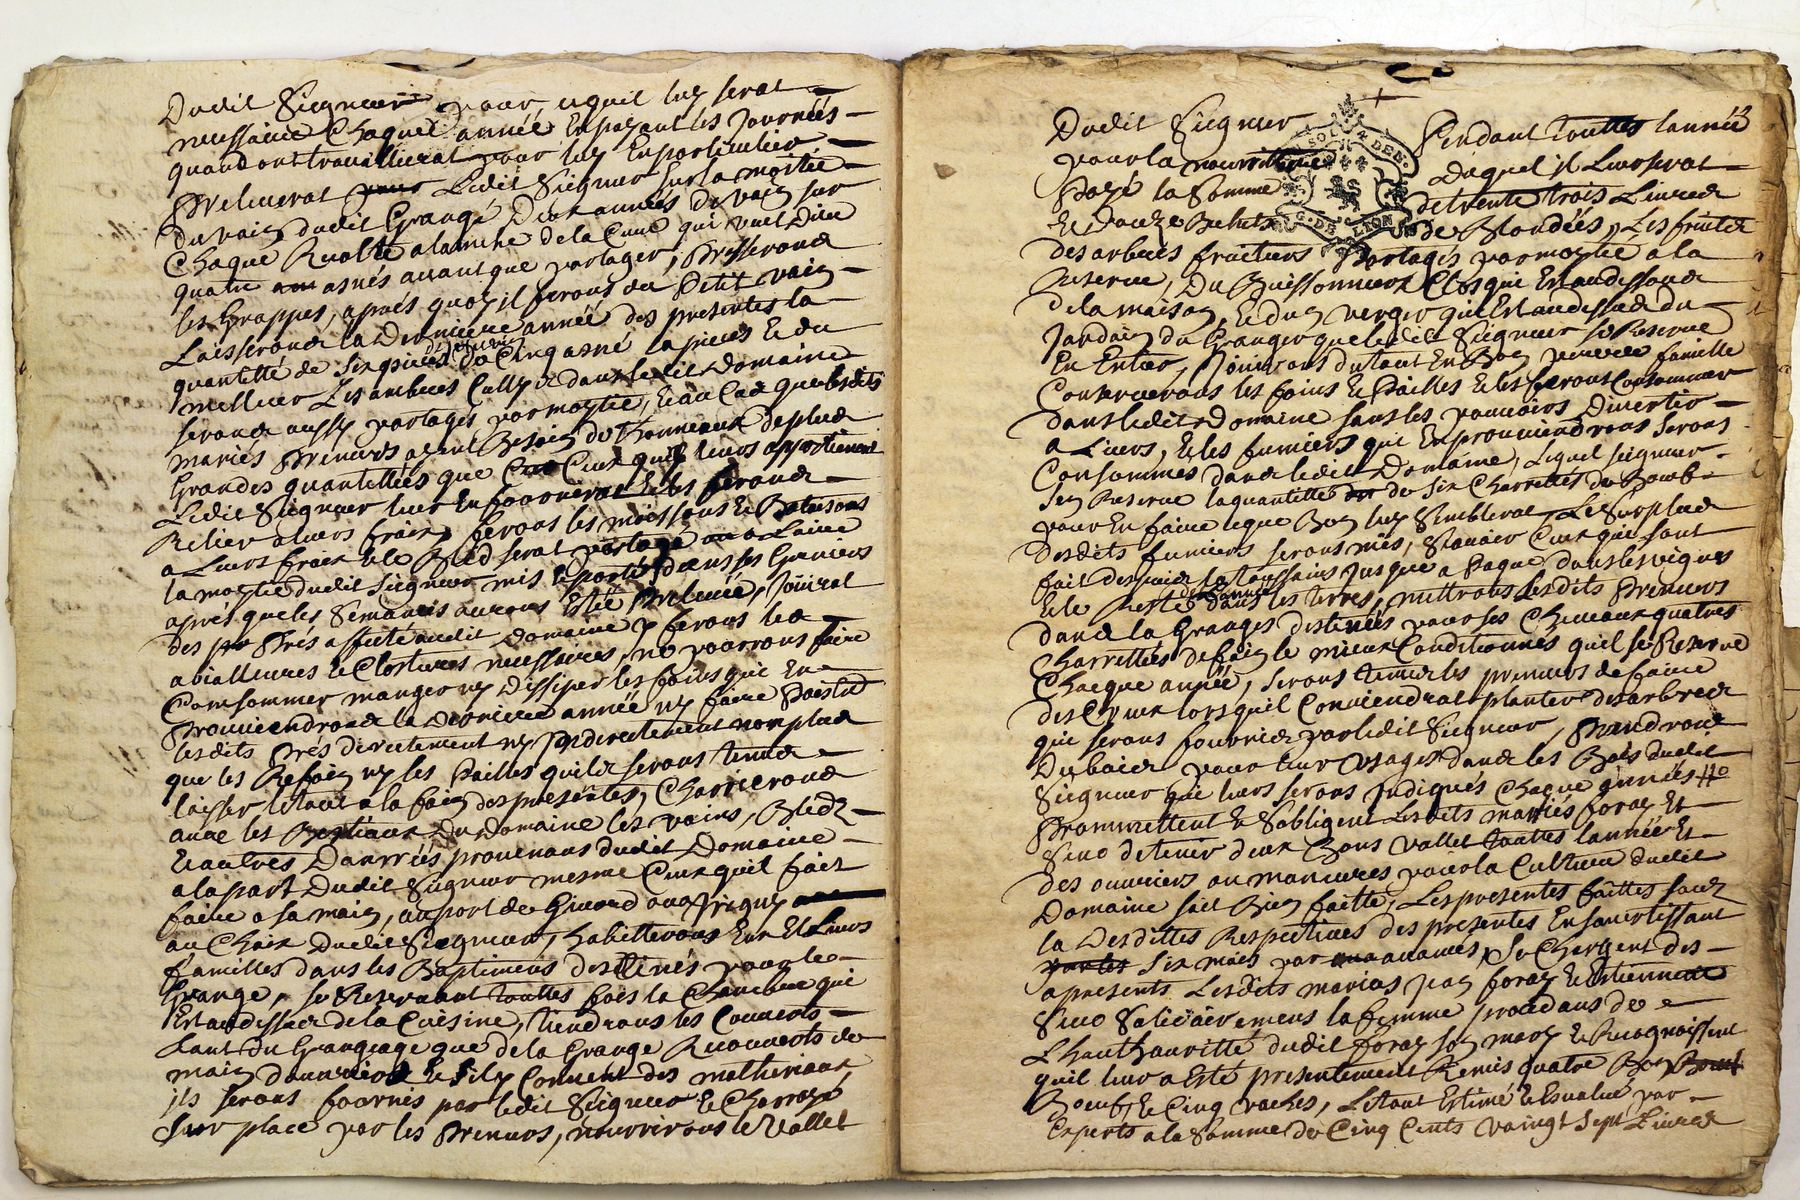 Dudit Seigneur pour ce quil luy serat
necessaire Chaque année En payant les Journées
quand ont travallierat pour luy En particulier
Prelieverat Ledit Seigneur sur la moitié
du vain dudit Grangé Deux années de vain sur
Chaque Recolte a la mine de la Cuve qui veut Dire
quatre asnés avant que partager, Presserond
les Grappes, aprés quoy il ferons du Petit vain
Laisserond la Derniere année des presentes la
quantité de six pieces de Cinq asné la pieces Et du
melleur Les ambues Cullys dans ledit Domaine
serond aussy partagés par moytie, Et au Cas que lesdits
mariés Preneurs ayent Besoin de thonneaux de plus
Grandes quantittées que Ceux quil leurs appartienent
Ledit Seigneur leur En fournirat Et les ferond
Relier a leurs fraix, ferons les moissons Et Bataisons
a Leurs fraix Et le Bled serat partagé a Laire
la moytie dudit Seigneur mis Et porté dans ses Greniers
aprés que les Semances aurons Esté Prelevée, Joüirat
des Prés affecté audit Domaine y ferons les
abialleures Et Clostures necessaires, ne pourrons faire
Comsommer manger ny Dissiper les foins qui En
Prouviendrond la Derniere année ny faire Paistre
lesdits Prés directement ny Indirectement nomplus
que les Refoin ny les Pailles quils serons tenus
laisser letout a la fain des presentes, Charrierond
avec les Bestiaux Du Domaine les vains, Bleds
Et aultres Danrriés prouvenans dudit Domaine
a la part Dudit Seigneur mesme Ceux quil fait
faire a sa main, au port de Givord ou a Irigny
au Choix Dudit Seigneur, habitterons Eux Et Leurs
familles dans les Baptiments destinés pour le
Grange, se Reservant touttes fois la Chambre qui
Est audessus de la Cuisine, tiendrons les Couverts
tant du Grangeage que de la Grange Recouverts de
main douvrier Et sily Convient des matheriaux
ils serons fournis par ledit Seigneur Et Charroyé
sur place par les Preneurs, nourrirons le vallet
12
Dudit Seigneur Pendant touttes lannée
pour la nourritture Duquel il Leur serat
Payé la Somme de trente trois Livres
Et douze Bichets de Blondées, Les fruits
des arbres fruitiers Partagés par moytié a la
Reserve, Du Buissonniers Clos qui Est audessous
de la maison, Et dun verger qui Est audessus du
Jardain du Granger que ledit Seigneur se Reserve
En Entier, Joüirons du tout En Bon pere de famille
Conserverons les foins Et Pailles Et les ferons Consommer
dans ledit Domaine sans les pouvoirs Divertir
a Lieurs, Et les fumiers qui En prouviendrons serons
Consommés dans ledit Domaine, Lequel seigneur
sen Reserve la quantitté de six Charrettés de Bouë
pour En faire ceque Bon luy semblerat Le surplus
desdits fumiers serons mis, sçavoir Ceux qui sont
fait despuis la Toussains Jusque a Paque dans les vignes
Et le Reste dans les terres, mettrons lesdits Preneurs
dans la Granges destinés pour ses Chevaux quatres
Charrettées de foin le mieux Conditionnés quil se Reserve
Chaeque année, serons tenus les preneurs de faire
des Creux lorsquil Conviendrat planter des arbres
qui serons fournies par ledit Seigneur, Prandrons
Du bois pour leur Usages dans les Bois dudit
Seigneur qui leurs serons Indiqués Chaque année
Promettent Et sobligent Lesdits mariés foray Et
Sivo de tenir deux Bons vallet touttes lannée Et
des ouvriers ou maneuvres pour la Culture dudit
Domaine soit Bien faitte, Les presentes faittes sauf
la Desdittes Respectives des presentes En savertissant
six mois par avances, Se Chargent des
apresents Lesdits mariés Jean foray Et Etiennette
Sivo Solidairement la femme procedans de
L'hauthauritté dudit foray son mary Et Recognoissent
quil leur a Esté presentement Remis quatre Bon
Boeuf, Et Cinq vaches, Letout Estimé Et Evalué par
Experts a la Somme de Cinq Cents vaingt Sept Livres